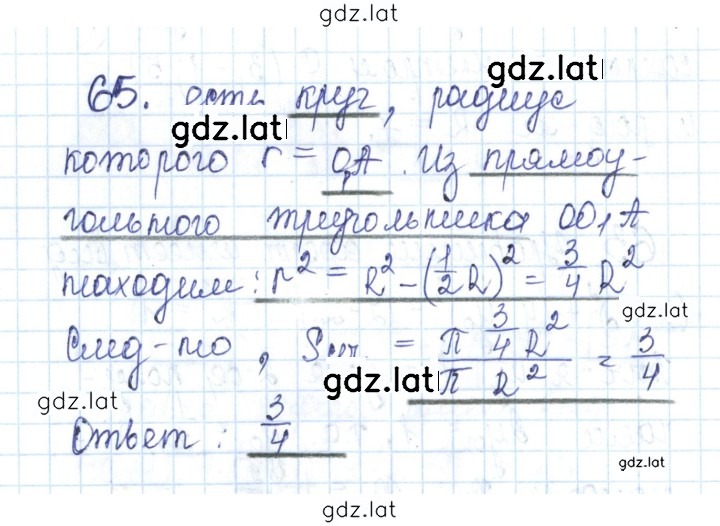 gdz.lat
65. есть круг, радиус
gdz.lat
gdz.lat
которого r = O₁A. Из прямоу-
гольного треугольника OO₁A
находим: r² = R² - (1/2 R)² = 3/4 R²
gdz.lat
След-но, = π 3/4 R² / π R² = 3/4
gdz.lat
gdz.lat
Ответ: 3/4
gdz.lat
gdz.lat